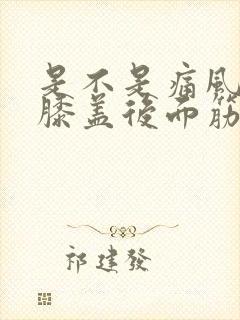 是不是痛風
膝盖後面筋
祁建發